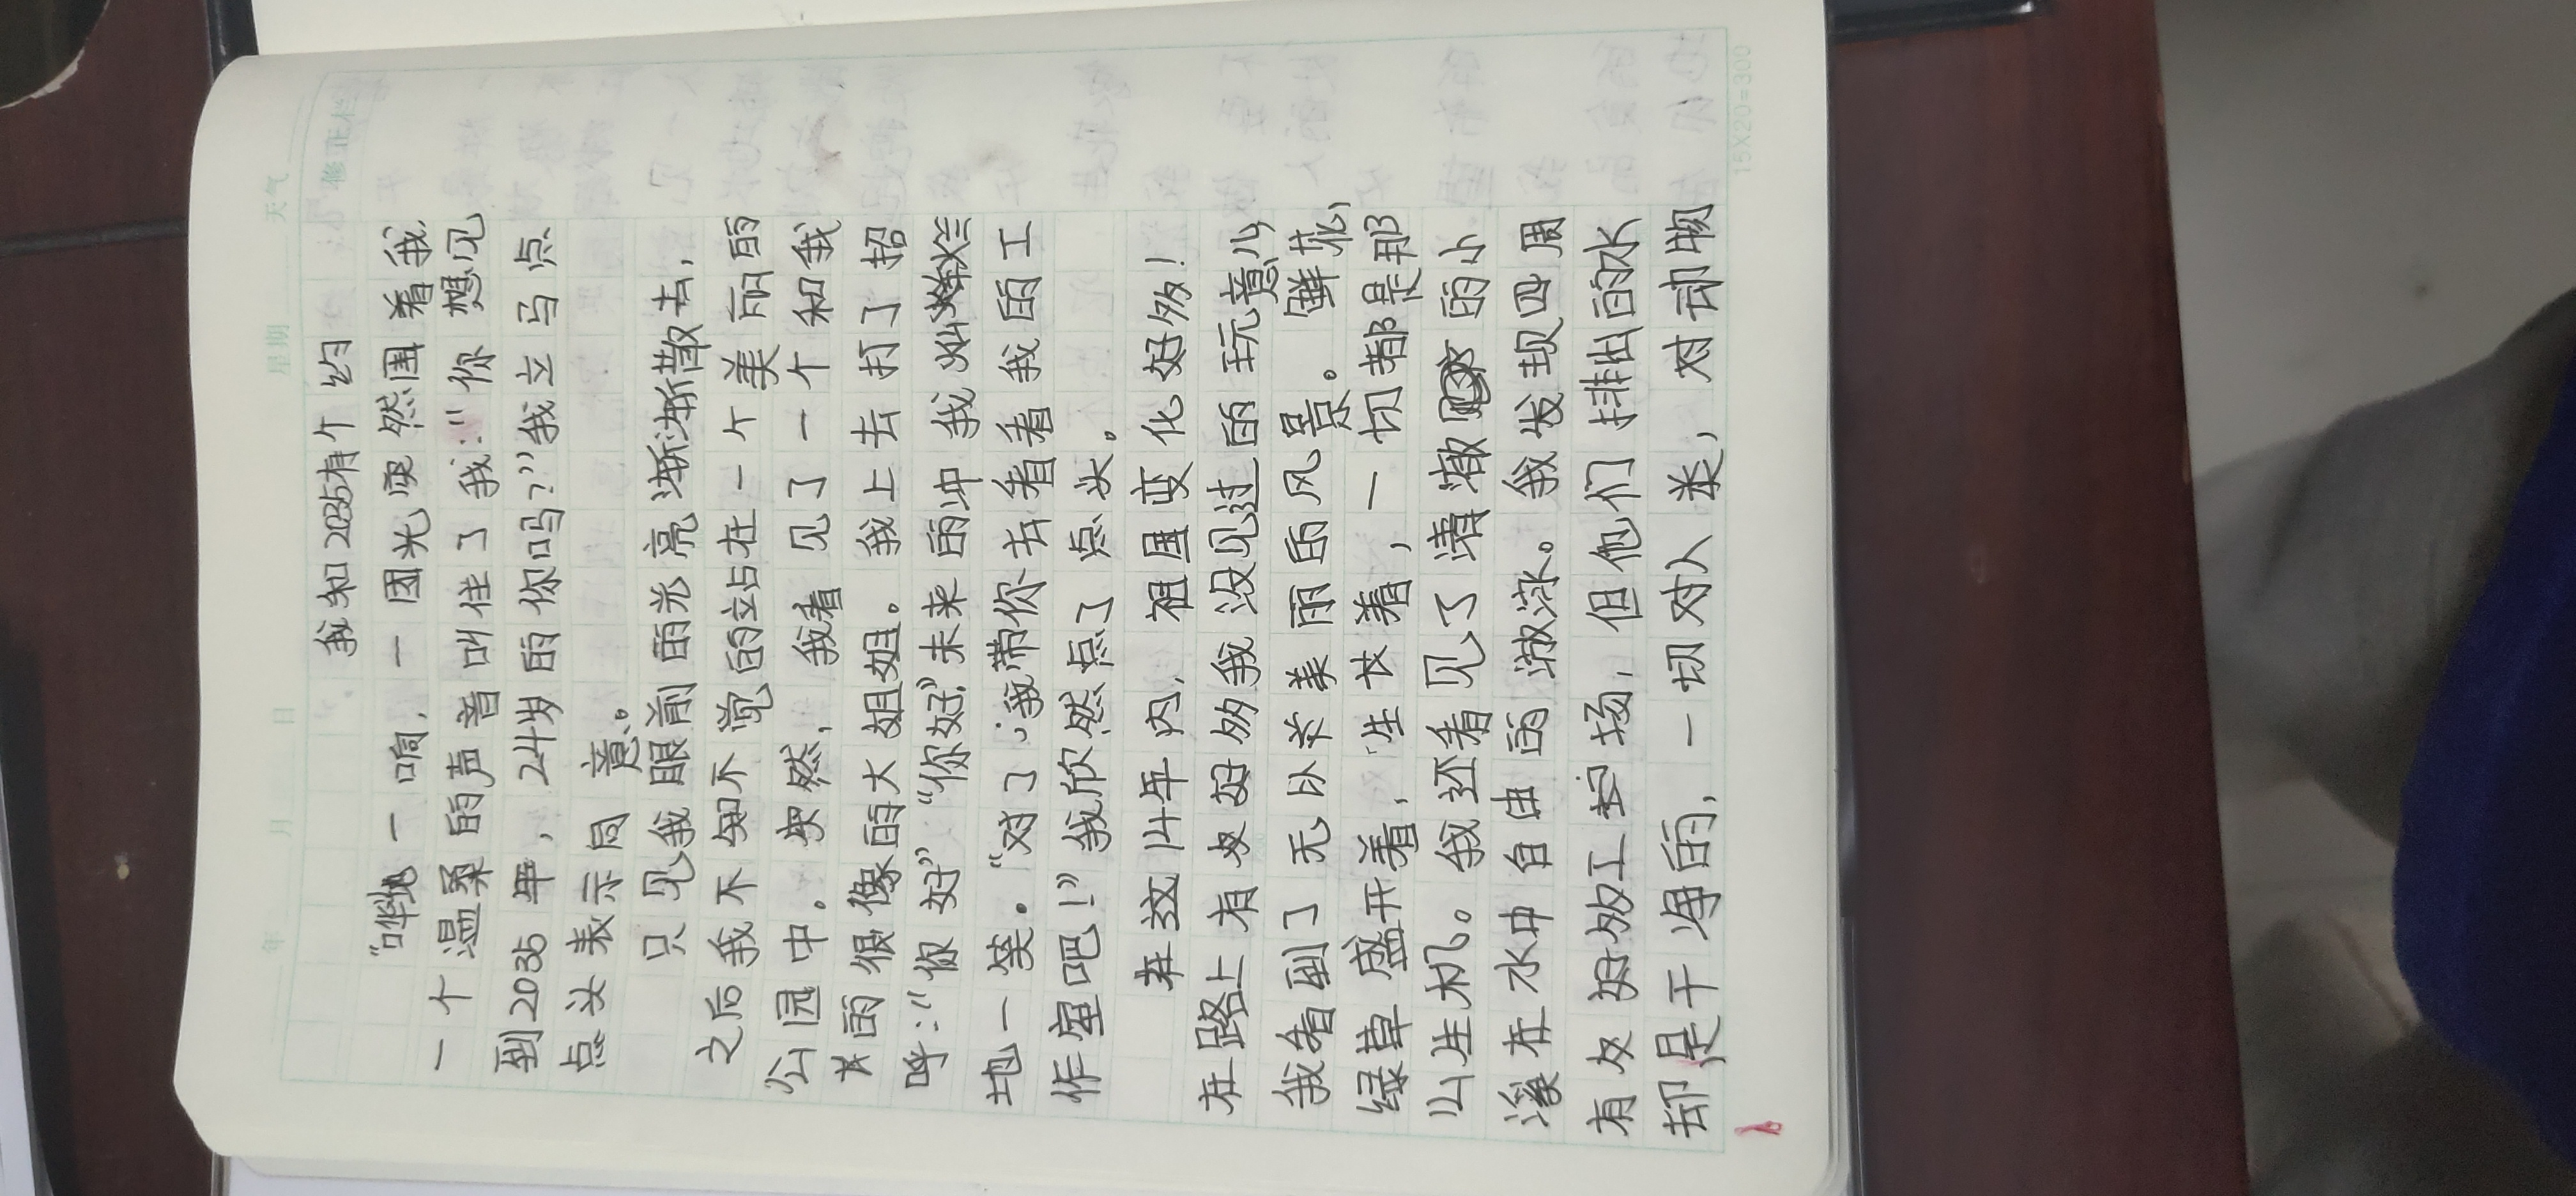 年 月 日 星期 天气
修正栏
我和2035有个约
“哗地一响,一团光突然围着我,
一个温柔的声音叫住了我:“你想见
到2035年,24岁的你吗?”我立马点
点头表示同意。
只见我眼前的光亮渐渐散去,
之后我不知不觉的站在一个美丽的
公园中。突然,我看见了一个和我
长的很像的大姐姐。我上去打了招
呼:“你好”“你好”未来的中我灿烂
地一笑。“对了,我带你去看看我的工
作室吧!”我欣然点了点头。
在这14年内,祖国变化好多!
在路上有好多我没见过的玩意儿,
我看到了无以伦美丽的风景。鲜花,
绿草盛开着,生长着,一切都是那
么生机。我还看见了清澈的小
溪在水中自由的游泳。我发现四周
有好多工场,但他们排出的水
却是干净的,一切对人类,对动物
15X20=300